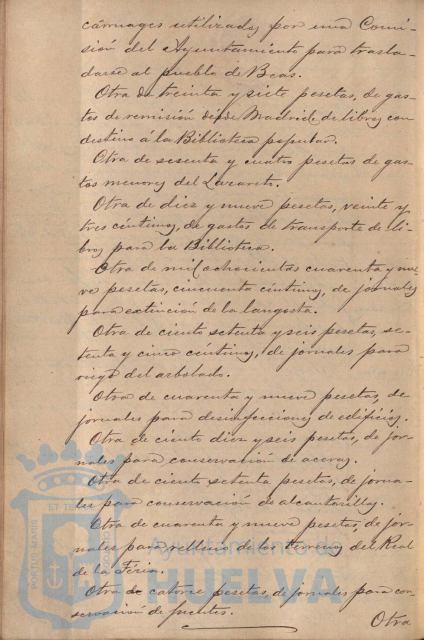 carruages utilizados por una Comi-
sión del Ayuntamiento para trasla-
darse al pueblo de Beas.
Otra de treinta y siete pesetas, de gas-
tos de remisión desde Madrid de libros con
destino á la Biblioteca popular.
Otra de sesenta y cuatro pesetas de gas-
tos menores del Lazareto.
Otra de diez y nueve pesetas, veinte y
tres céntimos, de gastos de transporte de li-
bros para la Biblioteca.
Otra de mil ochocientas cuarenta y nue-
ve pesetas, cincuenta céntimos, de jornales
para extinción de la langosta.
Otra de ciento setenta y seis pesetas, se-
tenta y cinco céntimos, de jornales para
riego del arbolado.
Otra de cuarenta y nueve pesetas, de
jornales para desinfecciones de edificios.
Otra de ciento diez y seis pesetas, de jor-
nales para conservación de aceras.
Otra de ciento setenta pesetas, de jorna-
les para conservación de alcantarillas.
Otra de cuarenta y nueve pesetas, de jor-
nales para relleno de los terrenos del Real
de la Feria.
Otra de catorce pesetas, de jornales para con-
servación de fuentes.
Otra
PORTUS MARIS ET TERRÆ CUSTODIO
Ayuntamiento de
HUELVA